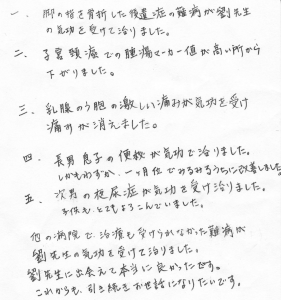 一、脚の指を骨折した後遺症の難病が劉先生
の気功を受けて治りました。
二、子宮頸癌での腫瘍マーカー値が高い所から
下がりました。
三、乳腺のう胞の激しい痛みが気功を受け
痛みが消えました。
四、長男息子の便秘が気功で治りました。
しかもわずか、一ヶ月位でみるみるうちに改善しました
五、次男の夜尿症が気功を受け治りました。
子供も、とてもよろこんでいました。
他の病院で、治療も受けられなかった難病が
劉先生の気功を受けて治りました。
劉先生に出会えて本当に良かったです。
これからも、引き続きお世話になりたいです。